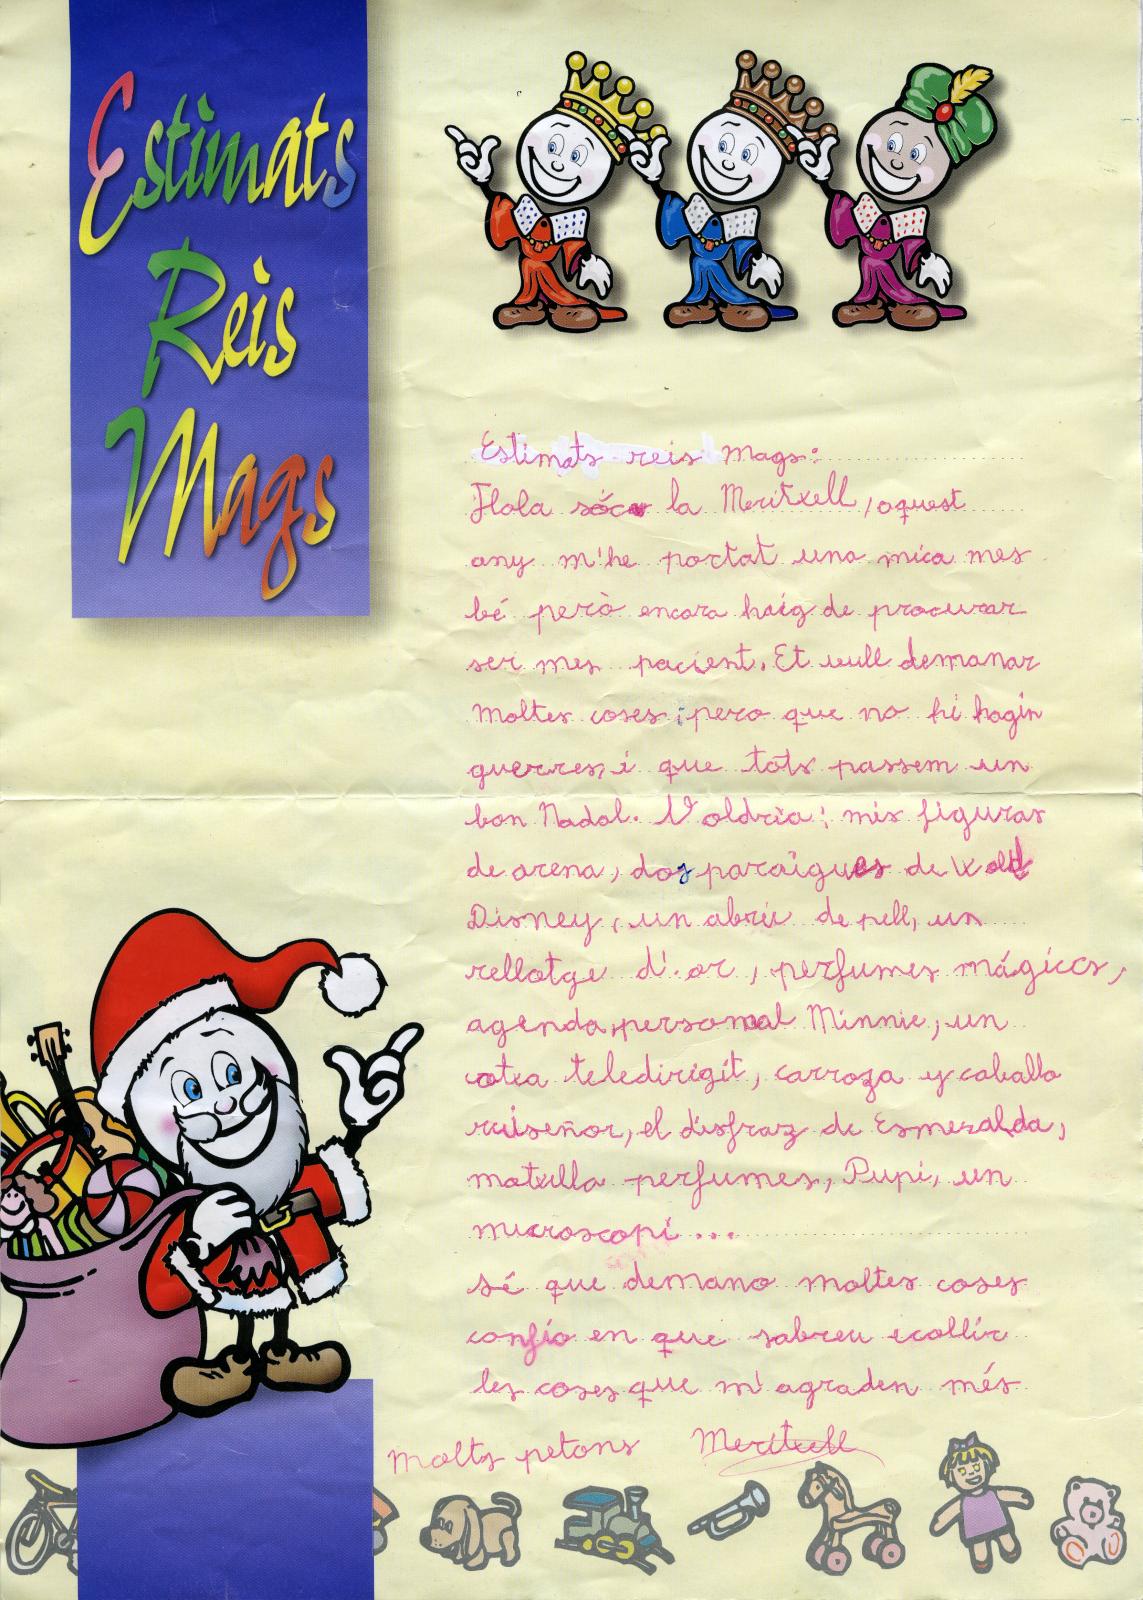 Estimats
Reis
Mags
Estimats reis Mags:
Hola sóc la Meritxell, aquest
any m'he portat una mica mes
bé però encara haig de procurar
ser mes pacient. Et vull demanar
moltes coses; pero que no hi hagin
guerres, i que tots passem un
bon Nadal. Voldria: mis figuras
de arena, dos paraigues de Walt
Disney, un abric de pell, un
rellotge d'or, perfumes mágicos,
agenda personal Minnie, un
cotxe teledirigit, carroza y caballo
ruiseñor, el disfraz de Esmeralda,
motxilla perfumes, Pupi, un
microscopi...
sé que demano moltes coses
confio en que sabreu ecollir
les coses que m'agraden més
molts petons Meritxell